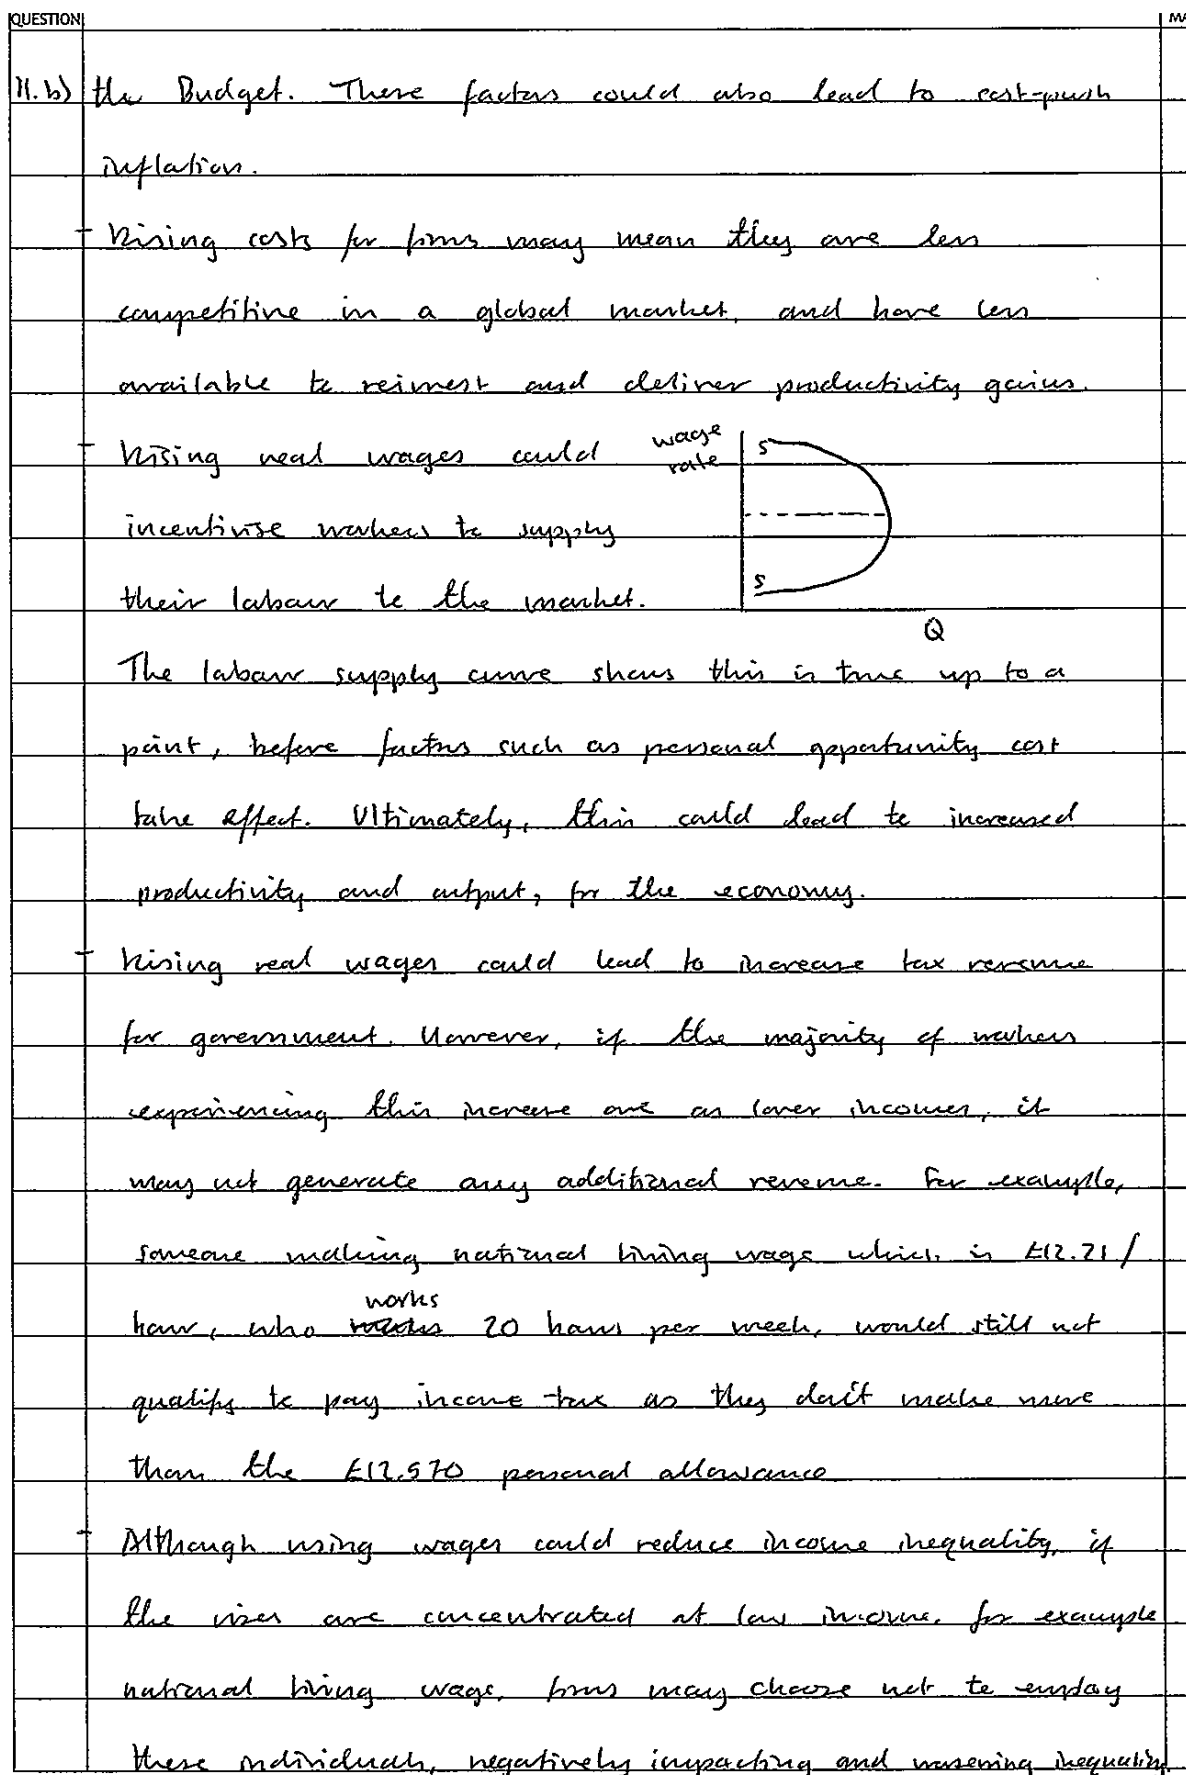 QUESTION
MA
11.b) the Budget. These factors could also lead to cost-push
inflation.
- Rising costs for firms may mean they are less
competitive in a global market, and have less
available to reinvest and deliver productivity gains.
- Rising real wages could
wage
rate
S
incentivise workers to supply
S
their labour to the market.
Q
The labour supply curve shows this is true up to a
point, before factors such as personal opportunity cost
take effect. Ultimately, this could lead to increased
productivity and output, for the economy.
- Rising real wages could lead to increase tax revenue
for government. However, if the majority of workers
experiencing this increase are on lower incomes, it
may not generate any additional revenue. For example,
someone making national living wage which is £12.21/
works
hour, who 20 hours per week, would still not
qualify to pay income tax as they don't make more
than the £12,570 personal allowance
- Although rising wages could reduce income inequality, if
the rises are concentrated at low income, for example
national living wage, firms may choose not to employ
these individuals, negatively impacting and worsening inequality.